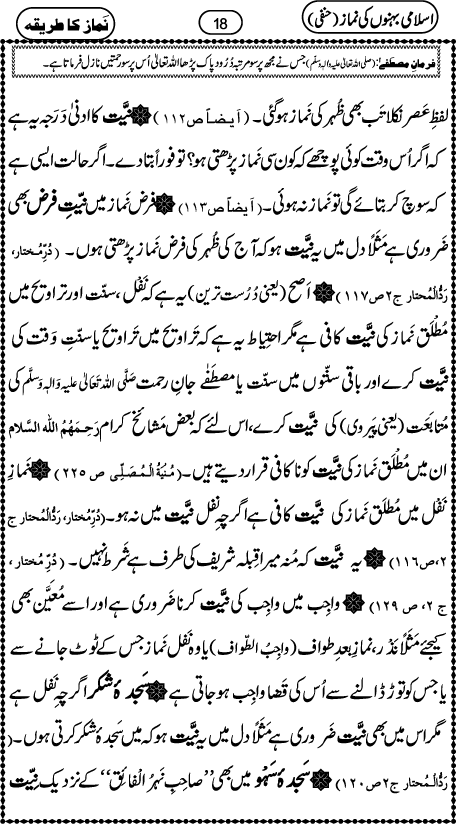 اسلامی بہنوں کی نماز (حنفی)
18
نَماز کا طریقہ
فرمانِ مصطفےٰ: (صلی اللہ تعالیٰ علیہ والہ وسلّم) جس نے مجھ پر سو مرتبہ دُرُود پاک پڑھا اللہ تعالیٰ اُس پر سو رحمتیں نازل فرماتا ہے۔
لفظِ عَصر نکلا تب بھی ظُہر کی نَماز ہو گئی۔ (اَیضاً ص۱۱۲) نیّت کا ادنیٰ دَرَجہ یہ ہے
کہ اگر اُس وقت کوئی پوچھے کہ کون سی نَماز پڑھتی ہو؟ تو فوراً بتا دے۔ اگر حالت ایسی ہے
کہ سوچ کر بتائے گی تو نَماز نہ ہوئی۔ (اَیضاً ص۱۱۳) فرض نَماز میں نیّتِ فرض بھی
ضَروری ہے مَثَلاً دل میں یہ نیّت ہو کہ آج کی ظُہر کی فرض نَماز پڑھتی ہوں۔ (دُرِّمختار،
رَدُّالْمُحتار ج۲ ص۱۱۷) اَصَح (یعنی دُرُست ترین) یہ ہے کہ نَفْل، سنّت اور تراویح میں
مُطْلَق نَماز کی نیّت کافی ہے مگر احتیاط یہ ہے کہ تَراویح میں تَراویح یا سنّتِ وَقت کی
نیّت کرے اور باقی سنّتوں میں سنّت یا مصطَفٰے جانِ رحمت صَلَّی اللہ تعالیٰ علیہ والہٖ وَسلّم کی
مُتابَعَت (یعنی پَیروی) کی نیّت کرے، اس لئے کہ بعض مَشائخِ کرام رَحِمَهُمُ اللهُ السَّلام
ان میں مُطْلَق نَماز کی نیّت کو ناکافی قرار دیتے ہیں۔ (مُنْیَۃُ الْمُصَلِّی ص ۲۲۵) نَمازِ
نَفْل میں مُطْلَق نَماز کی نیّت کافی ہے اگرچِہ نفل نیّت میں نہ ہو۔ (دُرِّمختار، رَدُّالْمُحتار ج
۲، ص۱۱۶) یہ نیّت کہ مُنہ میرا قِبلہ شریف کی طرف ہے شَرط نہیں۔ (دُرِّمختار،
ج ۲، ص ۱۲۹) واجِب میں واجِب کی نیّت کرنا ضَروری ہے اور اسے مُعَیَّن بھی
کیجئے مَثَلاً نَذْر، نَمازِ بعدِ طواف (واجِبُ الطّواف) یا وہ نَفْل نَماز جس کے ٹوٹ جانے سے
یا جس کو توڑ ڈالنے سے اُس کی قضا واجِب ہو جاتی ہے سَجدۂ شکر اگرچِہ نَفْل ہے
مگر اس میں بھی نیّت ضَروری ہے مَثَلاً دل میں یہ نیّت ہو کہ میں سَجدۂ شکر کرتی ہوں۔ (
رَدُّالْمُحتار ج۲ ص۱۲۰) سَجدۂ سَہْو میں بھی ’’صاحِبِ نَہرُ الْفائِق‘‘ کے نزدیک نیّت